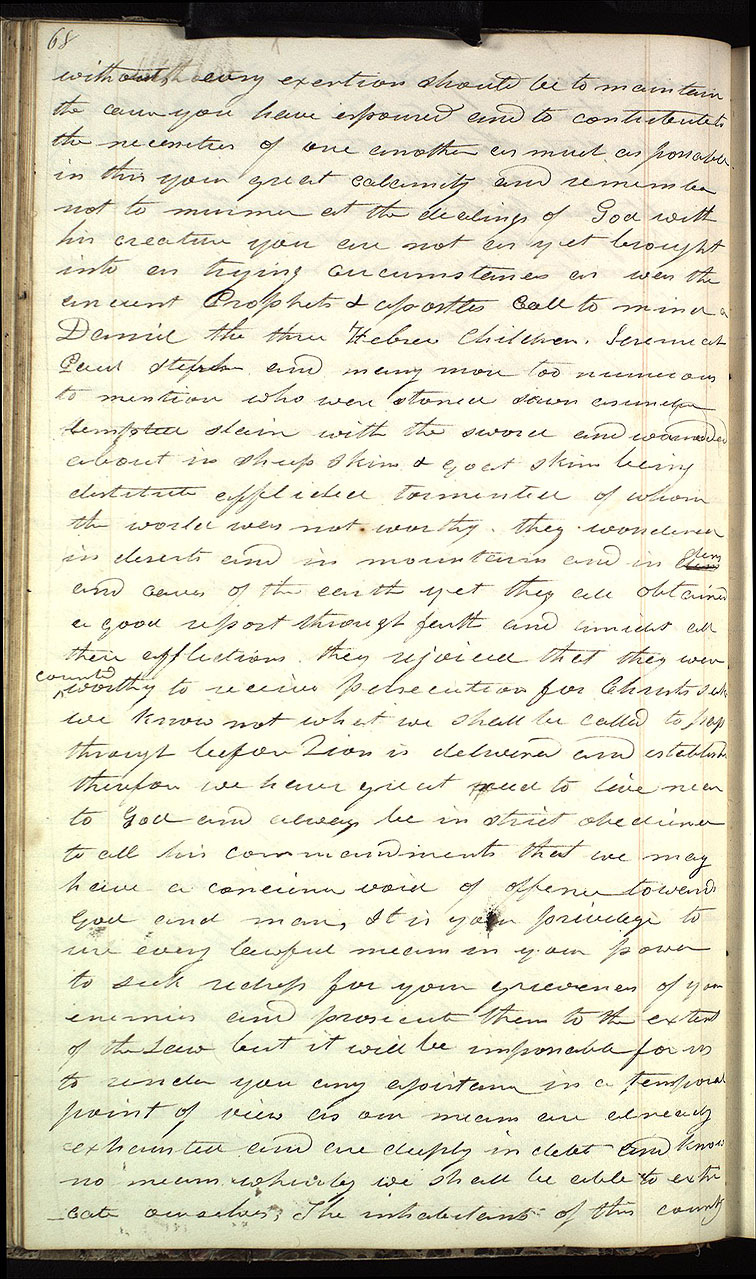 68
without, every exertion should be to maintain
the cause you have espoused and to contribute to
the necessities of one another as much as possable
in this your great calamity and remember
not to murmer at the dealings of God with
his creature you are not as yet brought
into as trying circumstances as was the
ancient Prophets & apostles Call to mind a
Daniel the three Hebrew Children. Jeremiah
Paul Stephen and many more too numerous
to mention who were stoned sawn asunder
tempted slain with the sword and wandered
about in sheep skins & goat skins being
destitute afflicted tormented of whom
the world was not worthy. they wondered
in deserts and in mountains and in dens
and caves of the earth yet they all obtained
a good report through faith and amidst all
their afflictions they rejoiced that they were
counted
worthy to receive persecution for Christs sake
we know not what we shall be called to pass
through before Zion is delivered and established
therefore we have great need to live near
to God and always be in strict obedience
to all his commandments that we may
have a concience void of offense towards
God and man, It is your privilege to
use every lawful means in your power
to seek redress for your grievences of your
enemies and prosecute them to the extent
of the Law but it will be impossable for us
to render you any assistance in a temporal
point of view as our means are already
exhausted and are deeply in debt and know
no means whereby we shall be able to extri
-cate ourselves; The inhabitants of this county